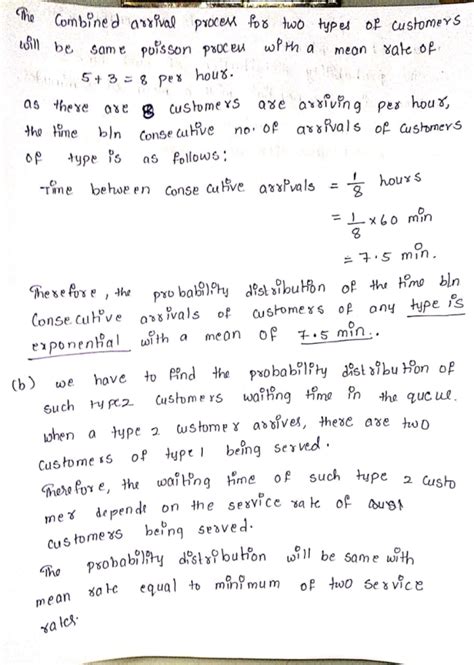 The combined arrival process for two types of customers
will be same poisson process with a mean rate of
5 + 3 = 8 per hour.
as there are 8 customers are arriving per hour,
the time b/n consecutive no. of arrivals of customers
of type is as follows:
Time between consecutive arrivals = 1/8 hours
= 1/8 × 60 min
= 7.5 min.
Therefore, the probability distribution of the time b/n
consecutive arrivals of customers of any type is
exponential with a mean of 7.5 min.
(b) we have to find the probability distribution of
such type2 customers waiting time in the queue.
when a type 2 customer arrives, there are two
customers of type 1 being served.
Therefore, the waiting time of such type 2 custo
mer depends on the service rate of
customers being served.
The probability distribution will be same with
mean rate equal to minimum of two service
rates.